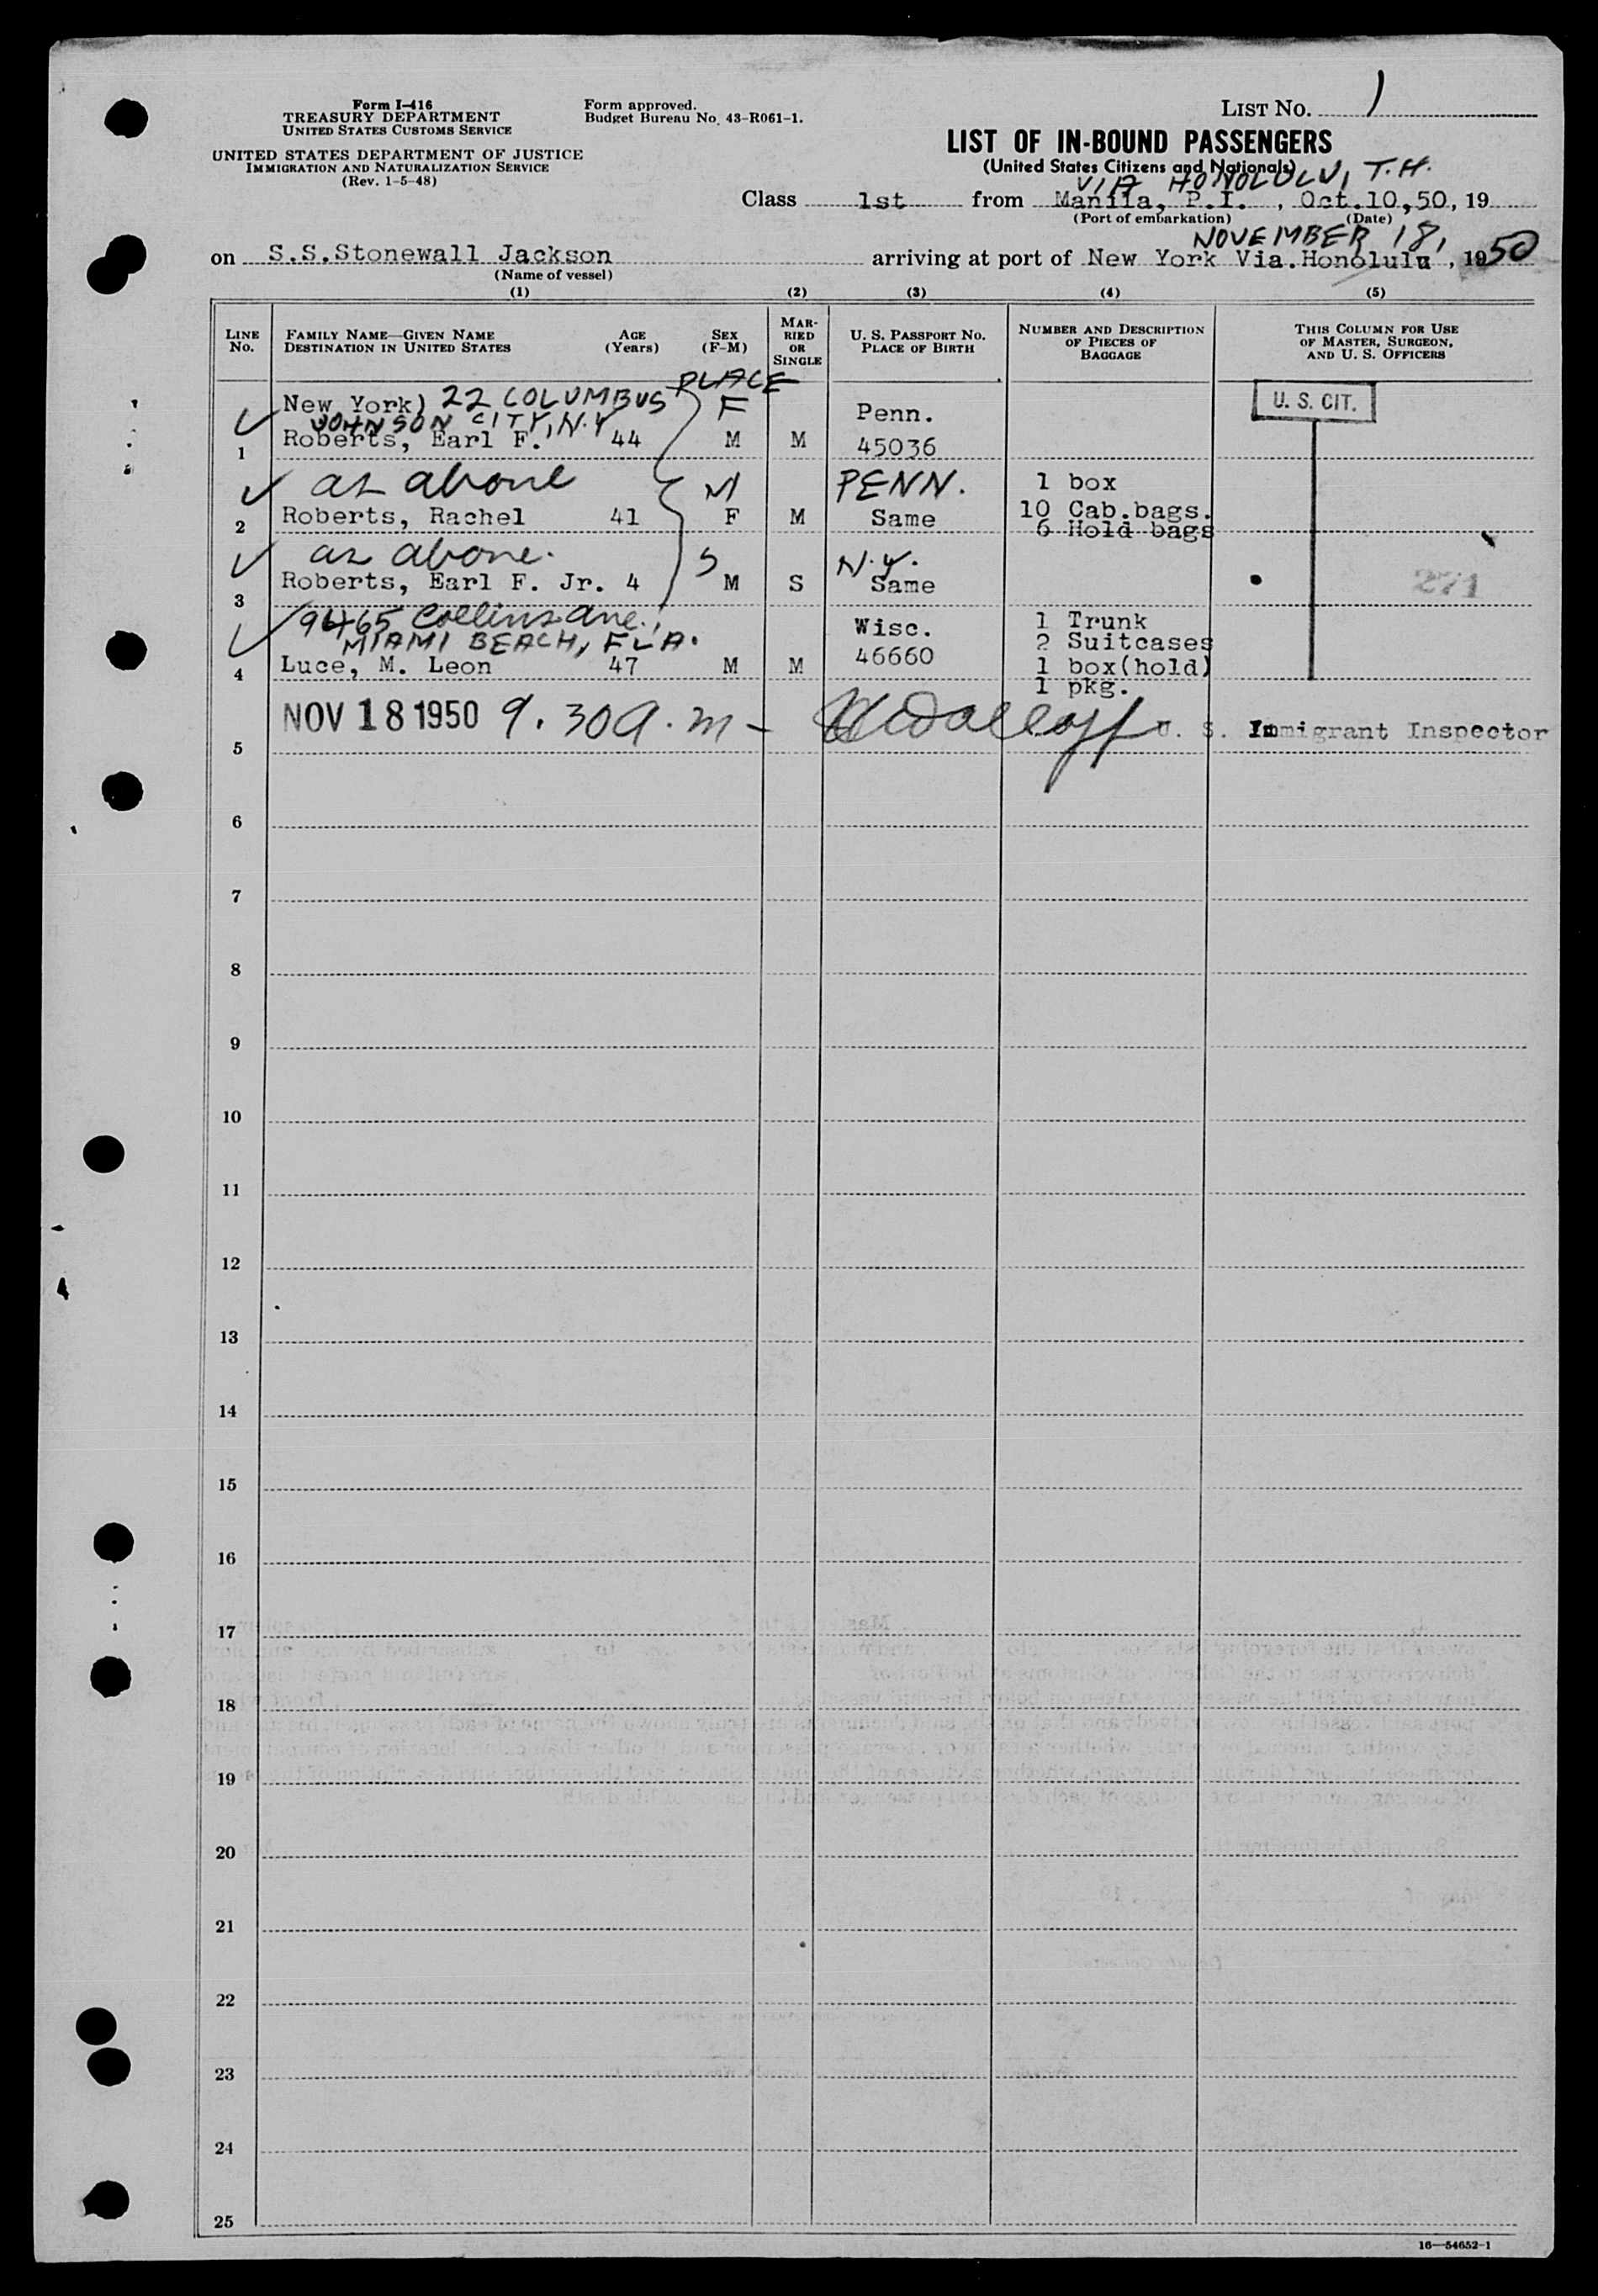 Form I-416
TREASURY DEPARTMENT
UNITED STATES CUSTOMS SERVICE
UNITED STATES DEPARTMENT OF JUSTICE
IMMIGRATION AND NATURALIZATION SERVICE
(Rev. 1-5-48)
Form approved.
Budget Bureau No. 43-R061-1.
LIST No. 1
LIST OF IN-BOUND PASSENGERS
(United States Citizens and Nationals)
VIA HONOLULU, T.H.
Class 1st from Manila, P.I., Oct.10,50, 19
(Port of embarkation) (Date)
NOVEMBER 18,
on S.S.Stonewall Jackson arriving at port of New York Via.Honolulu, 1950
(Name of vessel)
(1) (2) (3) (4) (5)
LINE No. FAMILY NAME—GIVEN NAME DESTINATION IN UNITED STATES AGE (Years) SEX (F-M) MARRIED OR SINGLE U. S. PASSPORT NO. PLACE OF BIRTH NUMBER AND DESCRIPTION OF PIECES OF BAGGAGE THIS COLUMN FOR USE OF MASTER, SURGEON, AND U. S. OFFICERS
New York) 22 COLUMBUS PLACE F Penn. U. S. CIT.
JOHNSON CITY, N.Y
1 Roberts, Earl F. 44 M M 45036
as above M PENN. 1 box
2 Roberts, Rachel 41 F M Same 10 Cab.bags.
6 Hold bags
as above. S N.Y.
3 Roberts, Earl F. Jr. 4 M S Same 271
9465 Collins ave., Wisc. 1 Trunk
MIAMI BEACH, FLA. 2 Suitcases
4 Luce, M. Leon 47 M M 46660 1 box(hold)
1 pkg.
NOV 18 1950 9.30 a.m – U. S. Immigrant Inspector
5
6
7
8
9
10
11
12
13
14
15
16
17
18
19
20
21
22
23
24
25
16—54652-1